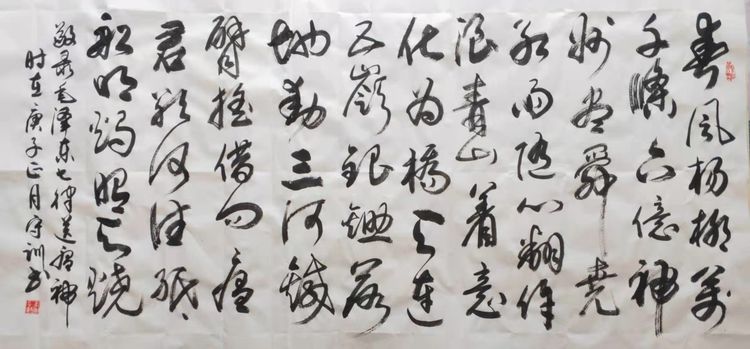 春风杨柳万
千條六億神
州尽舜堯
红雨随心翻作
浪青山着意
化为橋天连
五嶺银锄落
地动三河铁
臂摇借问瘟
君欲何往纸
船明烛照天烧
敬录毛泽东七律送瘟神
时在庚子正月守训书